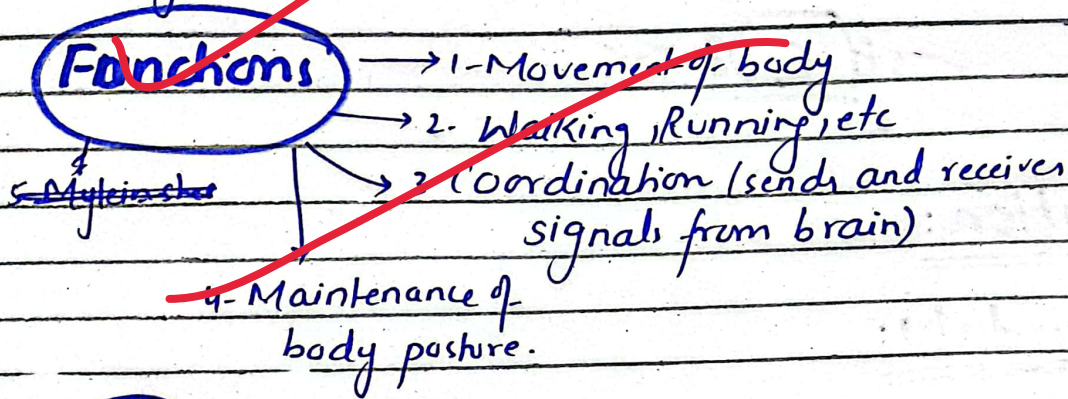 Functions
→ 1-Movement of body
→ 2. Walking, Running, etc
→ 3 Coordination (sends and receives
signals from brain)
5-Mylein
4- Maintenance of
body posture.